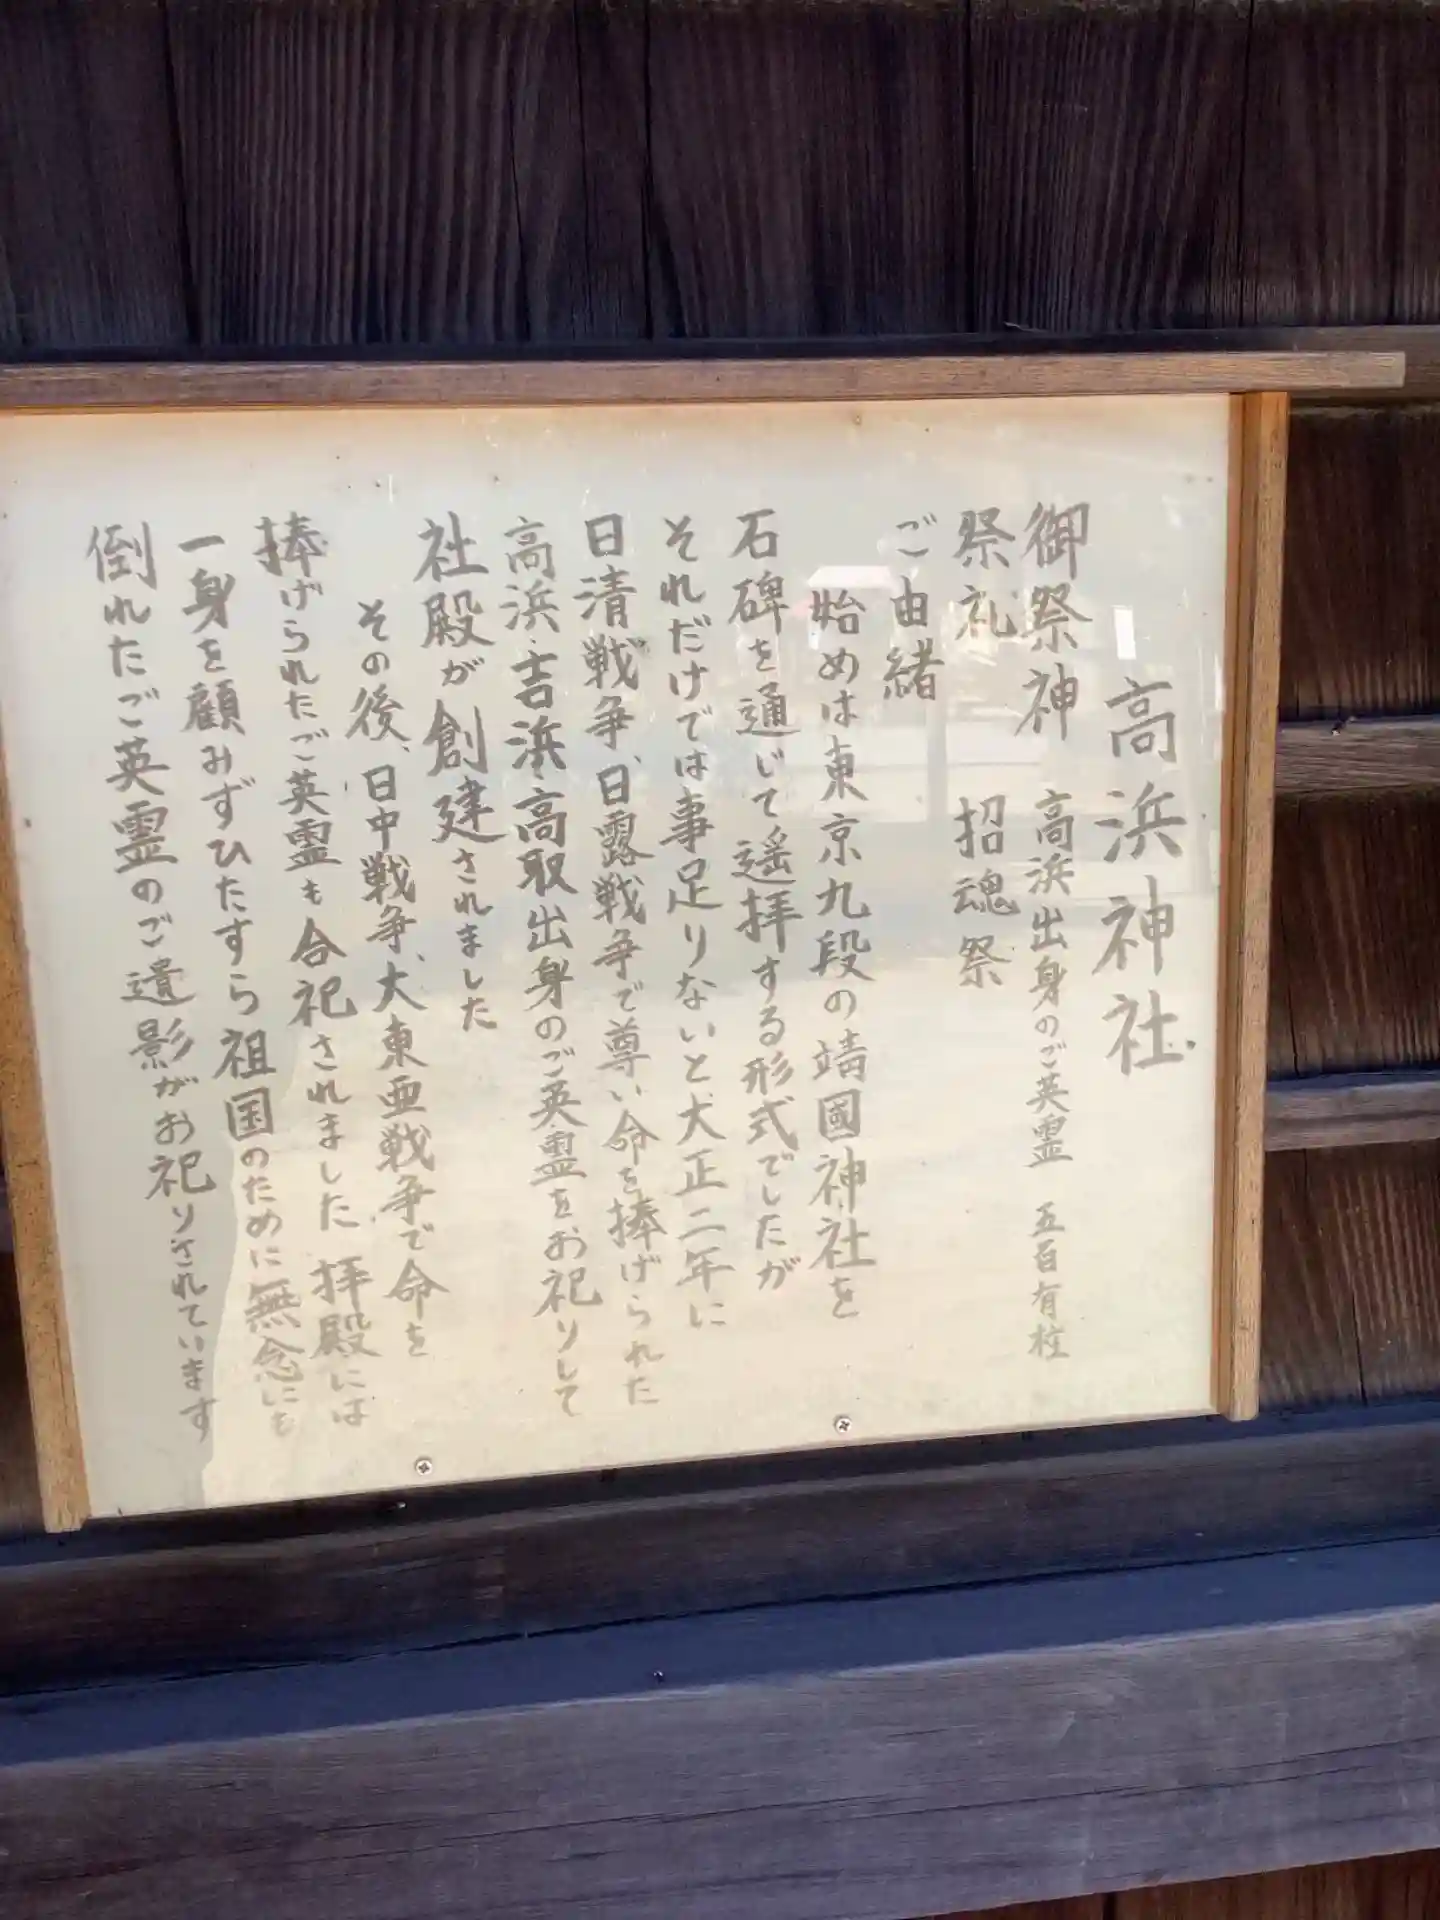 高浜神社
御祭神 高浜出身のご英霊 五百有柱
祭礼 招魂祭
ご由緒
始めは東京九段の靖國神社を
石碑を通じて遥拝する形式でしたが
それだけでは事足りないと大正二年に
日清戦争、日露戦争で尊い命を捧げられた
高浜・吉浜・高取出身のご英霊をお祀りして
社殿が創建されました
その後、日中戦争、大東亜戦争で命を
捧げられたご英霊も合祀されました 拝殿には
一身を顧みずひたすら祖国のために無念にも
倒れたご英霊のご遺影がお祀りされています